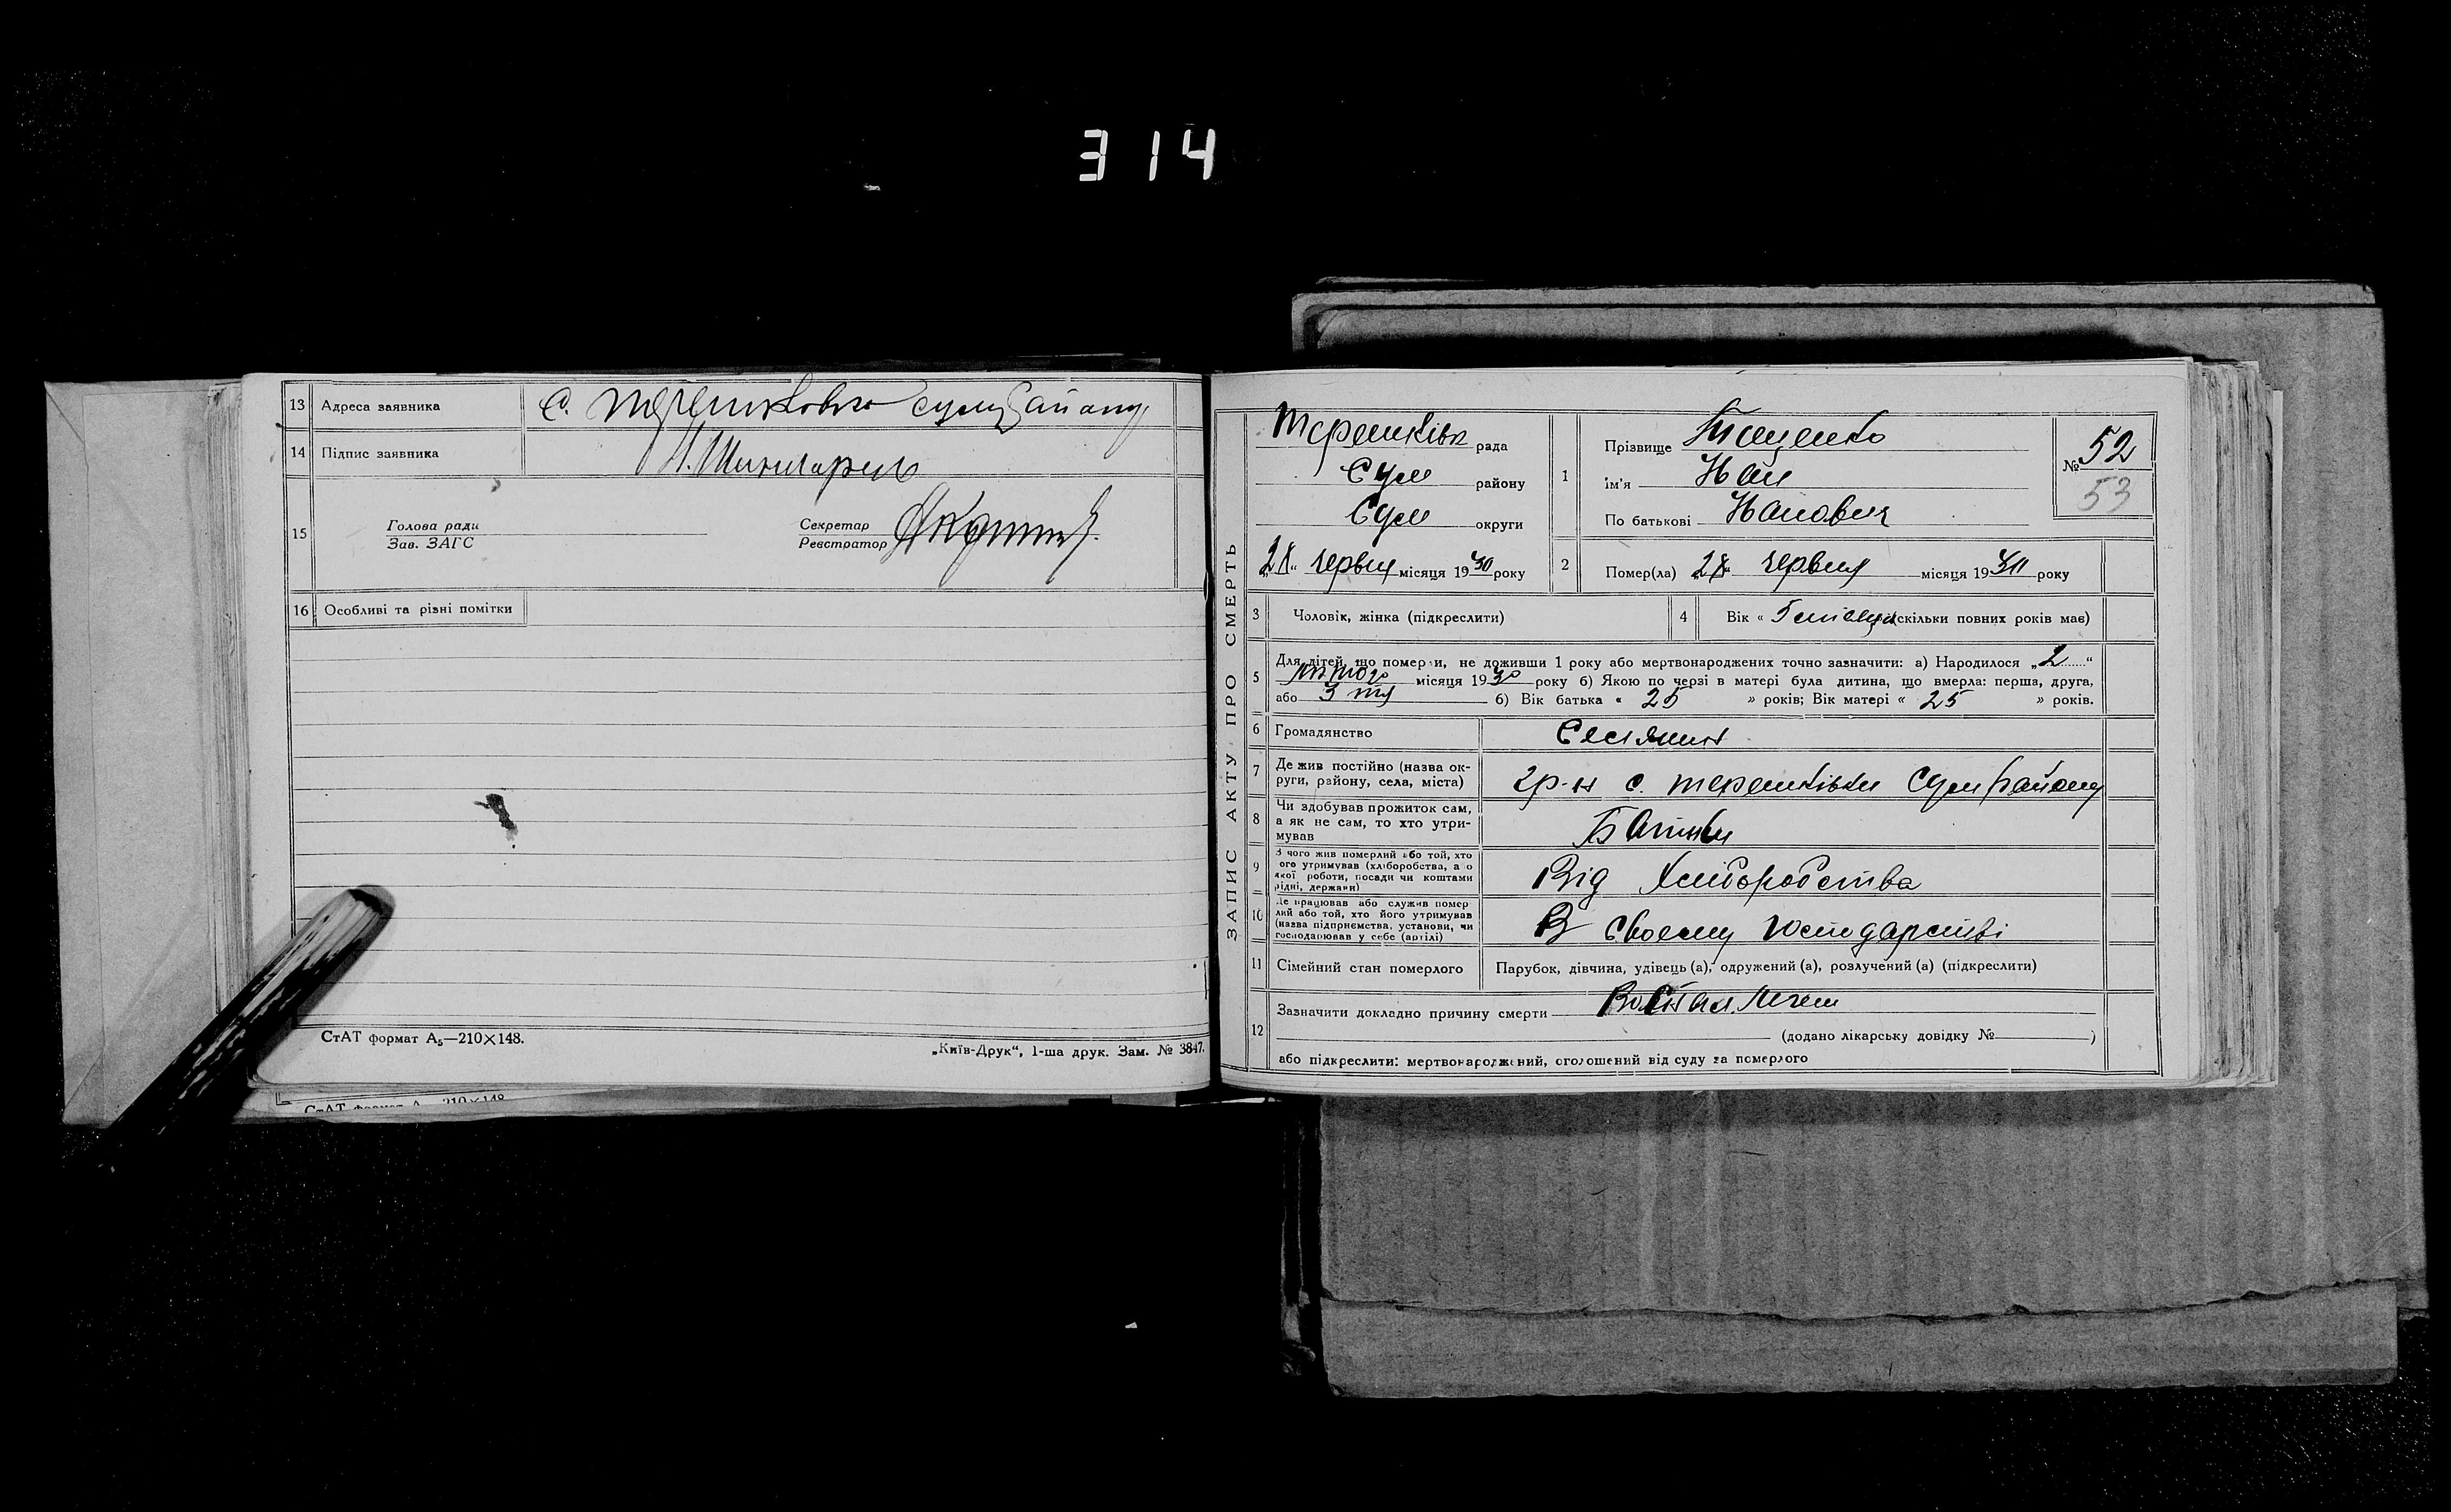 314
13 Адреса заявника с. Терешковка Сумрайону
14 Підпис заявника
15 Голова ради
Зав. ЗАГС
Секретар
Реєстратор
16 Особливі та різні помітки
СтАТ формат А₅—210×148.
„Київ-Друк“, 1-ша друк. Зам. № 3847.
СтАТ формат А 210×148
ЗАПИС АКТУ ПРО СМЕРТЬ
Терешківк рада
Сум району
Сум округи
„28“ червня місяця 1930 року
1 Прізвище Тищенко
Ім'я Иван
По батькові Иванович
№ 52
53
2 Помер(ла) „28“ червня місяця 1930 року
3 Чоловік, жінка (підкреслити)
4 Вік « 5 місяців (скільки повних років має)
5 Для дітей, що померли, не доживши 1 року або мертвонароджених точно зазначити: а) Народилося „2“
лютого місяця 1930 року б) Якою по черзі в матері була дитина, що вмерла: перша, друга,
або 3 тя б) Вік батька « 25 » років; Вік матері « 25 » років.
6 Громадянство Селянин
7 Де жив постійно (назва ок-
руги, району, села, міста) гр-н с. Терешківки Сумрайону
8 Чи здобував прожиток сам,
а як не сам, то хто утри-
мував Батьки
9 З чого жив померлий або той, хто
його утримував (хліборобства, або
якої роботи, посади чи коштами
рідні, держави) Від Хліборобства
10 Де працював або служив помер
лий або той, хто його утримував
(назва підприємства, установи, чи
господарював у себе (артілі) В своему господарстві
11 Сімейний стан померлого Парубок, дівчина, удівець (а), одружений (а), розлучений (а) (підкреслити)
12 Зазначити докладно причину смерти
(додано лікарську довідку №)
або підкреслити: мертвонароджений, оголошений від суду за померлого